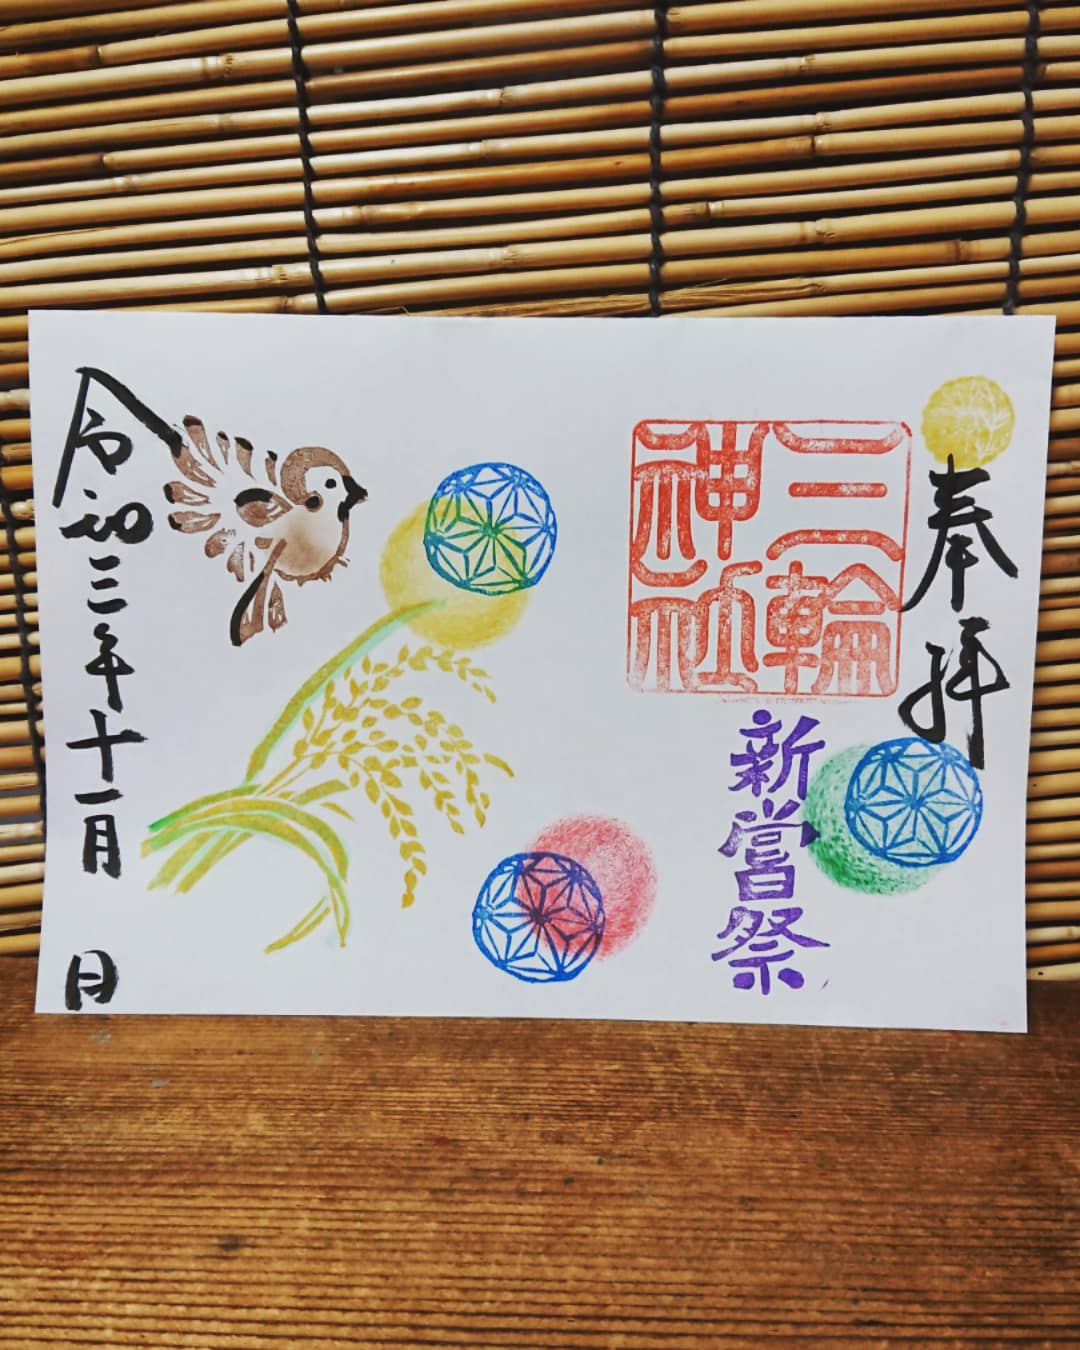 奉拝
三輪
神社
新嘗祭
令和三年十一月　日